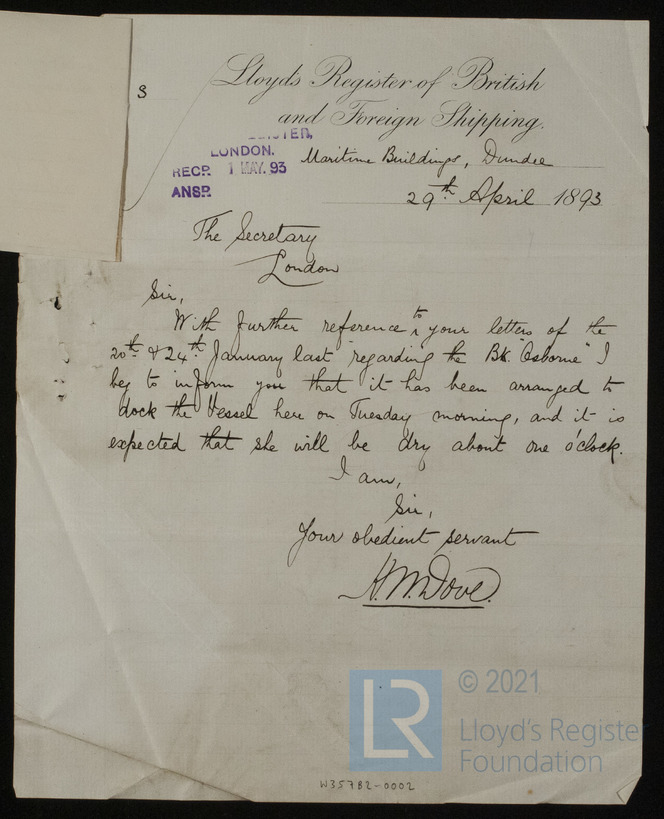 3
Lloyd's Register of British
and Foreign Shipping.
LONDON.
RECD. 1 MAY. 93
ANSD.
Maritime Buildings, Dundee
29th April 1893
The Secretary
London
Sir,
With further reference to your letters of the
20th & 24th January last regarding the Bk. "Osborne" I
beg to inform you that it has been arranged to
dock the Vessel here on Tuesday morning, and it is
expected that she will be dry about one o'clock.
I am,
Sir,
Your obedient servant
H.M.Dove.
LR
© 2021
Lloyd's Register
Foundation
W35782-0002